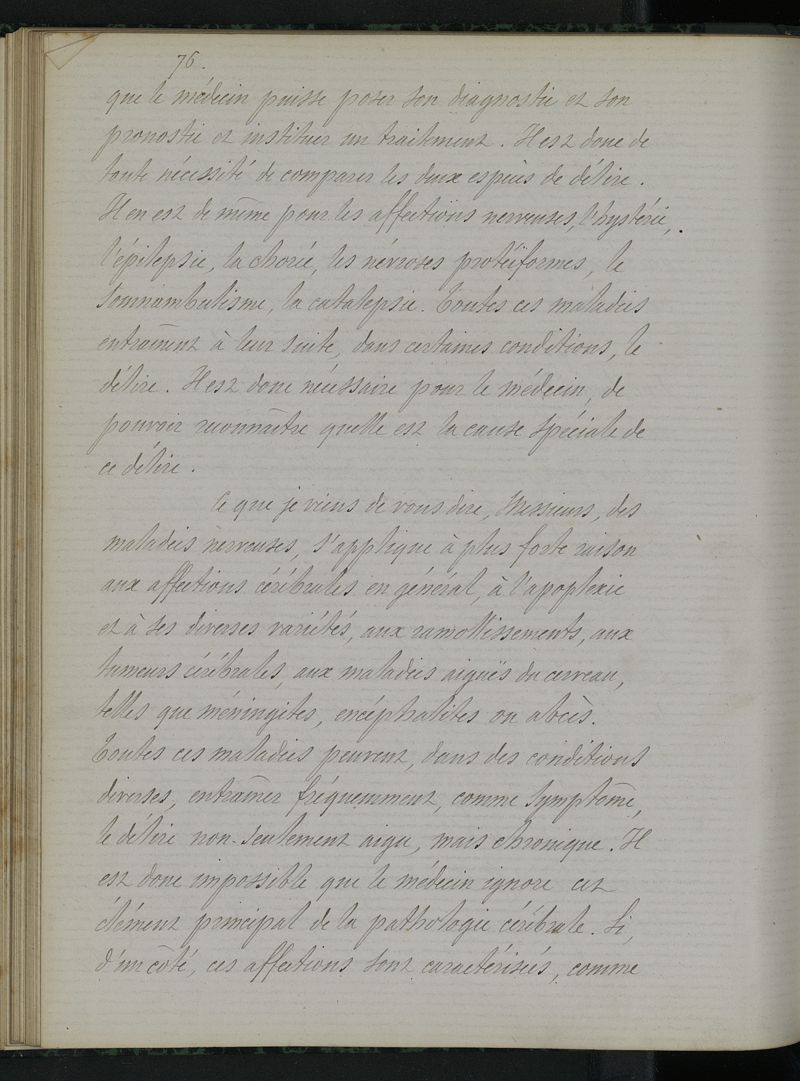 76.
que le médecin puisse poser son diagnostic et son
pronostic et instituer un traitement. Il est donc de
toute nécessité de comparer les deux espèces de délire.
Il en est de même pour les affections nerveuses, l'hystérie,
l'épilepsie, la chorée, les névroses protéiformes, le
somnambulisme, la catalepsie. Toutes ces maladies
entraînent à leur suite, dans certaines conditions, le
délire. Il est donc nécessaire pour le médecin, de
pouvoir reconnaître quelle est la cause spéciale de
ce délire.
Ce que je viens de vous dire, Messieurs, des
maladies nerveuses, s'applique à plus forte raison
aux affections cérébrales en général, à l'apoplexie
et à ses diverses variétés, aux ramollissements, aux
tumeurs cérébrales, aux maladies aiguës du cerveau,
telles que méningites, encéphalites ou abcès.
Toutes ces maladies peuvent, dans des conditions
diverses, entraîner fréquemment, comme symptôme,
le délire non-seulement aigu, mais chronique. Il
est donc impossible que le médecin ignore cet
élément principal de la pathologie cérébrale. Si,
d'un côté, ces affections sont caractérisées, comme